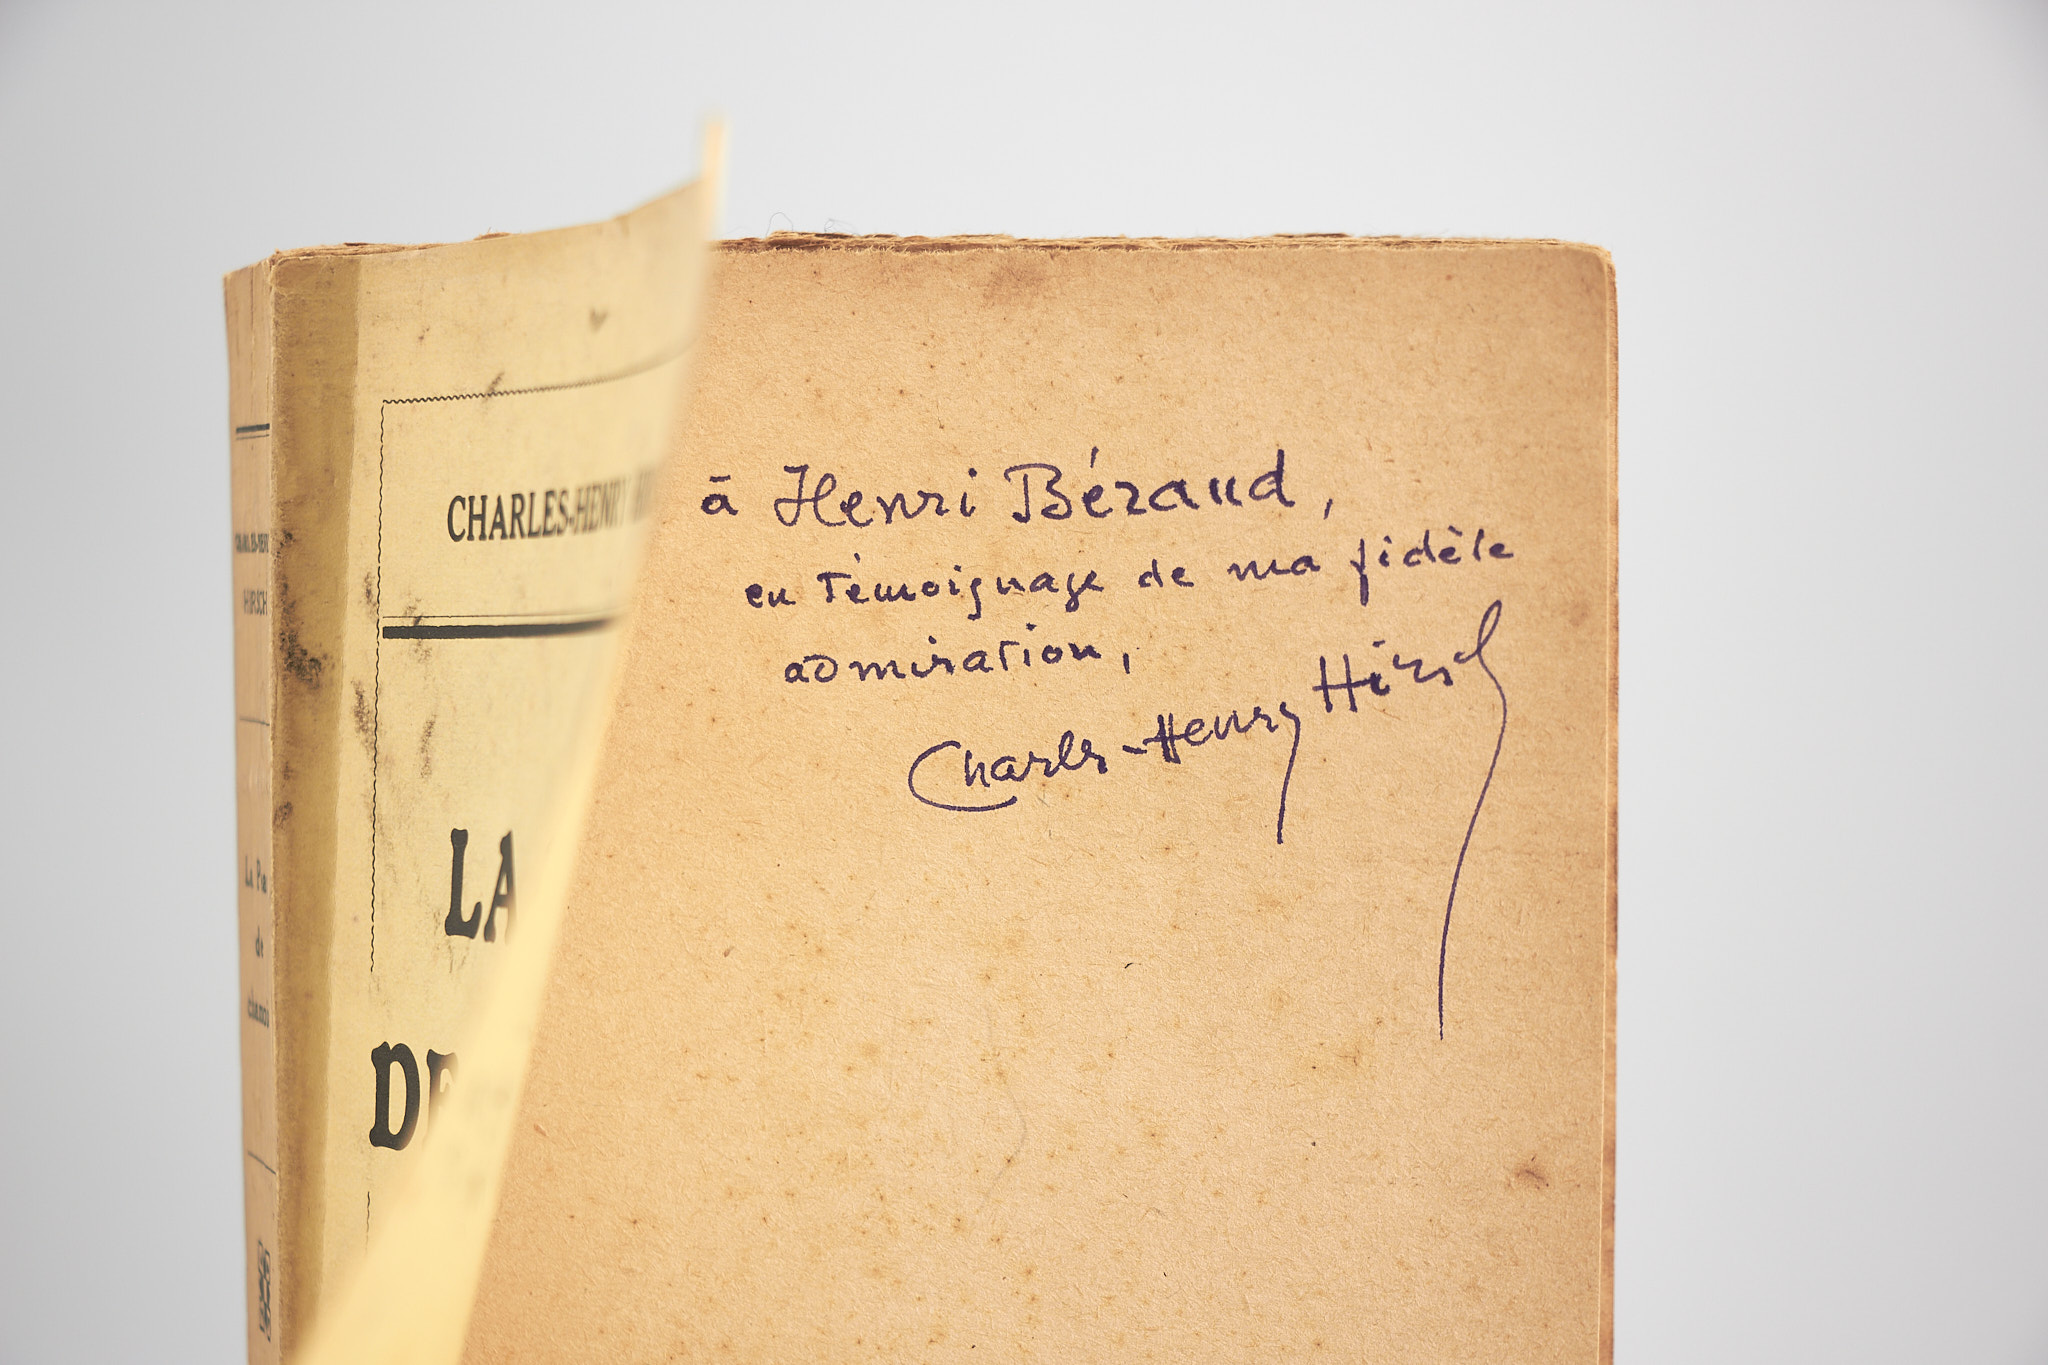 CHARLES-HENRY
LA
DE
HIRSCH
La
de
à Henri Béraud,
en témoignage de ma fidèle
admiration,
Charles-Henry Hirsch